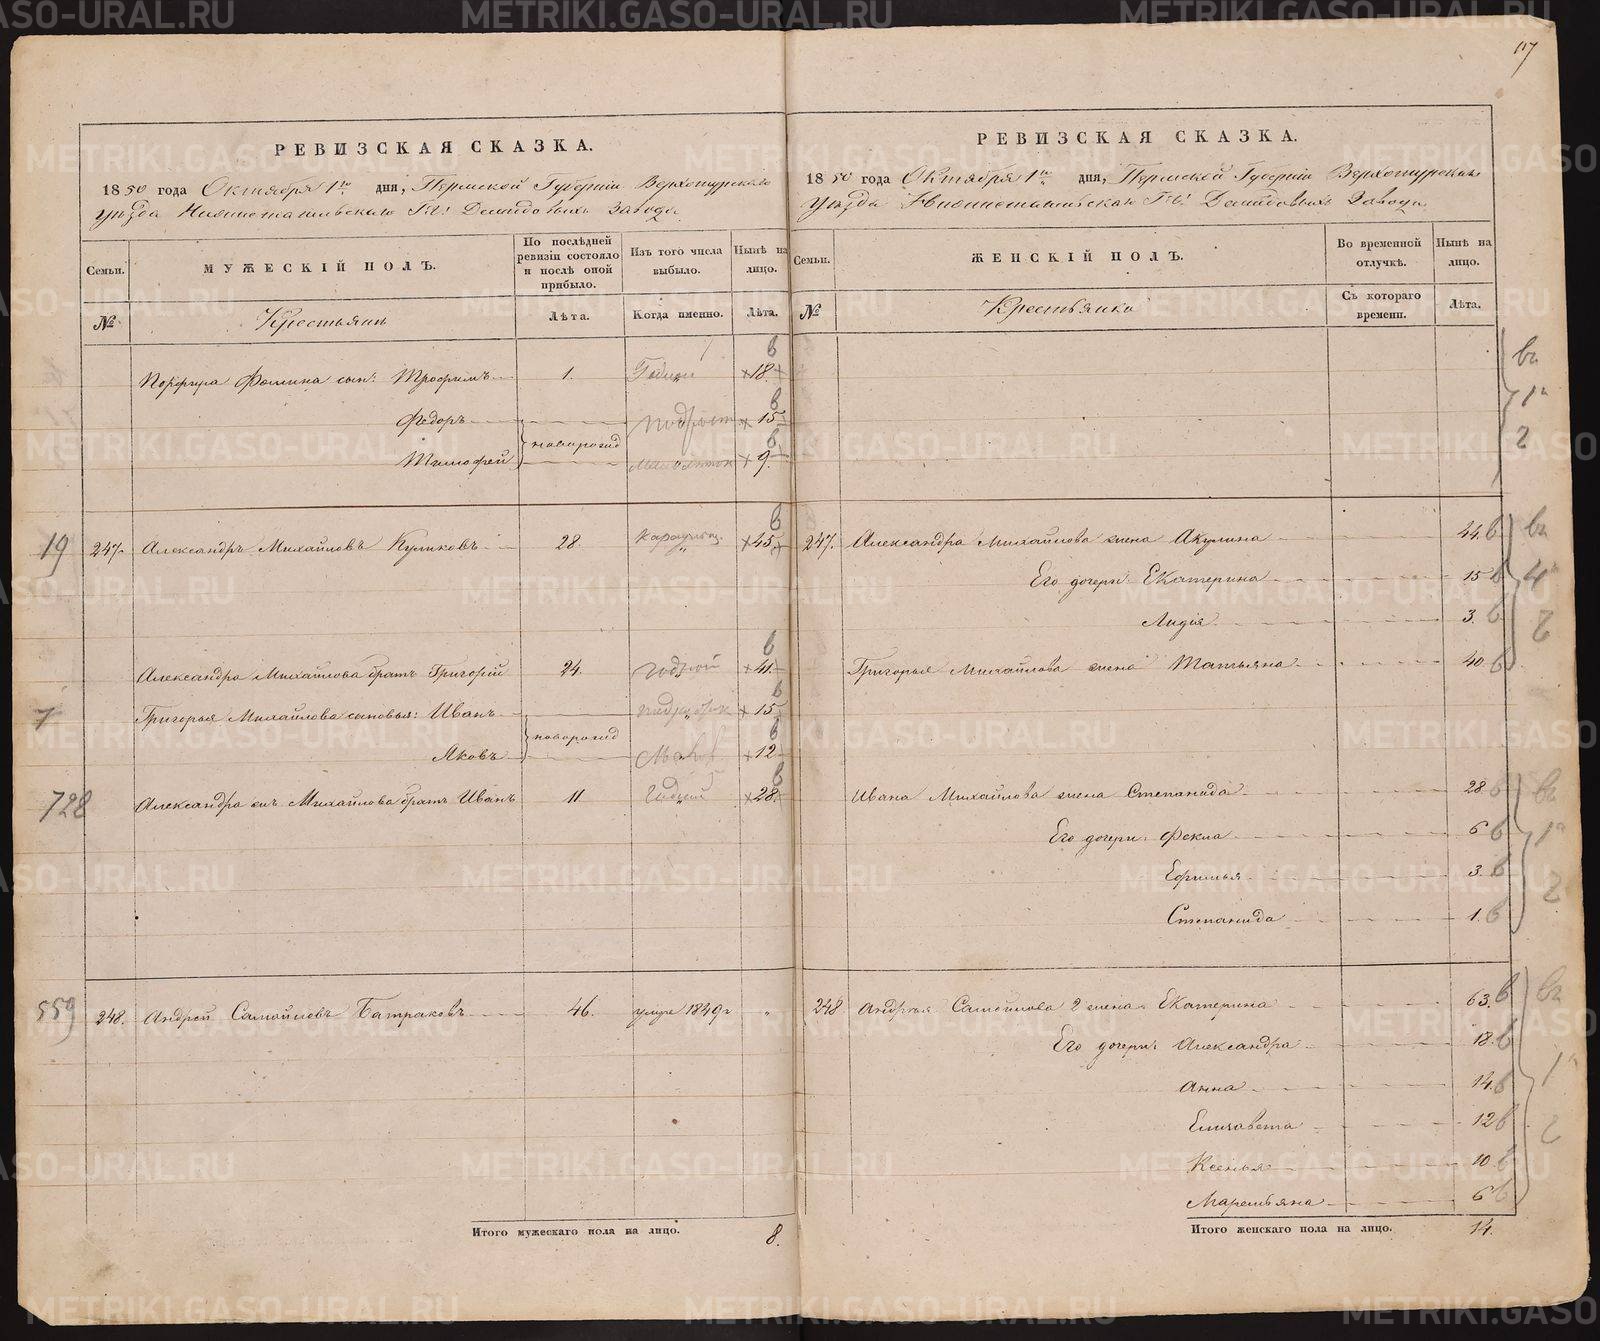 117
РЕВИЗСКАЯ СКАЗКА.
1850 года Октября 1го дня, Пермской Губерніи Верхотурскаго
Уѣзда Нижнетагильскаго Гг. Демидовыхъ Завода
Семьи.
МУЖЕСКІЙ ПОЛЪ.
По послѣдней ревизіи состояло и послѣ оной прибыло.
Изъ того числа выбыло.
Нынѣ на лицо.
№
Крестьяне
Лѣта.
Когда именно.
Лѣта.
Порфира Фомина сын: Трофимъ 1. Годной 18
Федоръ новорожд подрост 15
Тимофей 9
19 247. Александръ Михайловъ Куликовъ 28. 45
Александра Михайлова братъ Григорій 24. годной 41
7 Григорья Михайлова сыновья: Иванъ новорожд 15
Яковъ 12
728 Александра Михайлова братъ Иванъ 11 Годной 28
559 248. Андрей Самойловъ Батраковъ 46. умре 1849 г „
Итого мужескаго пола на лицо. 8.
РЕВИЗСКАЯ СКАЗКА.
1850 года Октября 1го дня, Пермской Губерніи Верхотурскаго
Уѣзда Нижнетагильскаго Гг. Демидовыхъ Завода
Семьи.
ЖЕНСКІЙ ПОЛЪ.
Во временной отлучкѣ.
Нынѣ на лицо.
№
Крестьянка
Съ котораго времени.
Лѣта.
247. Александра Михайлова жена Акулина 44.
Его дочери: Екатерина 15
Лидія 3.
Григорья Михайлова жена Татьяна 40
Ивана Михайлова жена Степанида 28
Его дочери: Фекла 6
Ефимья 3.
Степанида 1.
248 Андрея Самойлова 2 жена Екатерина 63.
Его дочери: Александра 18.
Анна 14.
Елизавета 12
Ксенья 10.
Маремьяна 6
Итого женскаго пола на лицо. 14.
METRIKI.GASO-URAL.RU